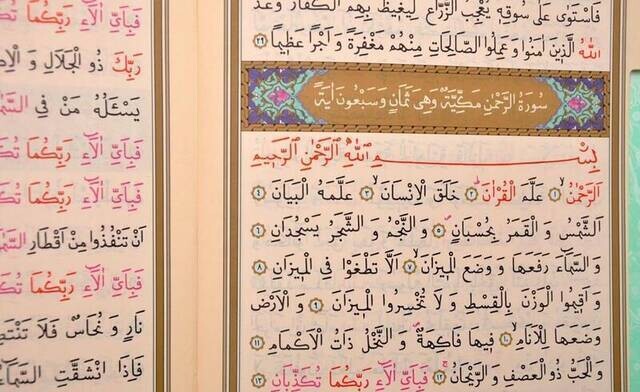 فَاسْتَوٰى عَلٰى سُوقِه۪ يُعْجِبُ الزُّرَّاعَ لِيَغ۪يظَ بِهِمُ الْكُفَّارَ وَعَدَ
اللّٰهُ الَّذ۪ينَ اٰمَنُوا وَعَمِلُوا الصَّالِحَاتِ مِنْهُمْ مَغْفِرَةً وَاَجْرًا عَظ۪يمًا ٢٩
سُورَةُ الرَّحْمٰنِ مَكِّيَّةٌ وَهِيَ ثَمَانٍ وَسَبْعُونَ اٰيَةً
بِسْمِ اللّٰهِ الرَّحْمٰنِ الرَّح۪يمِ
اَلرَّحْمٰنُ ١ عَلَّمَ الْقُرْاٰنَ ٢ خَلَقَ الْاِنْسَانَ ٣ عَلَّمَهُ الْبَيَانَ ٤
اَلشَّمْسُ وَالْقَمَرُ بِحُسْبَانٍ ٥ وَالنَّجْمُ وَالشَّجَرُ يَسْجُدَانِ ٦
وَالسَّمَٓاءَ رَفَعَهَا وَوَضَعَ الْم۪يزَانَ ٧ اَلَّا تَطْغَوْا فِي الْم۪يزَانِ ٨
وَاَق۪يمُوا الْوَزْنَ بِالْقِسْطِ وَلَا تُخْسِرُوا الْم۪يزَانَ ٩ وَالْاَرْضَ
وَضَعَهَا لِلْاَنَامِ ١٠ ف۪يهَا فَاكِهَةٌ وَالنَّخْلُ ذَاتُ الْاَكْمَامِ ١١
وَالْحَبُّ ذُو الْعَصْفِ وَالرَّيْحَانُ ١٢ فَبِاَيِّ اٰلَٓاءِ رَبِّكُمَا تُكَذِّبَانِ ١٣
فَبِاَيِّ اٰلَٓاءِ رَبِّكُمَا
رَبِّكَ ذُو الْجَلَالِ وَالْاِ
يَسْـَٔلُهُ مَنْ فِي
فَبِاَيِّ اٰلَٓاءِ رَبِّكُمَا تُكَ
فَبِاَيِّ اٰلَٓاءِ رَبِّكُمَا تُكَ
اَنْ تَنْفُذُوا مِنْ اَقْطَارِ
فَبِاَيِّ اٰلَٓاءِ رَبِّكُمَا تُكَ
نَارٍ وَنُحَاسٌ فَلَا تَنْتَصِ
فَاِذَا انْشَقَّتِ السَّمَٓاءُ